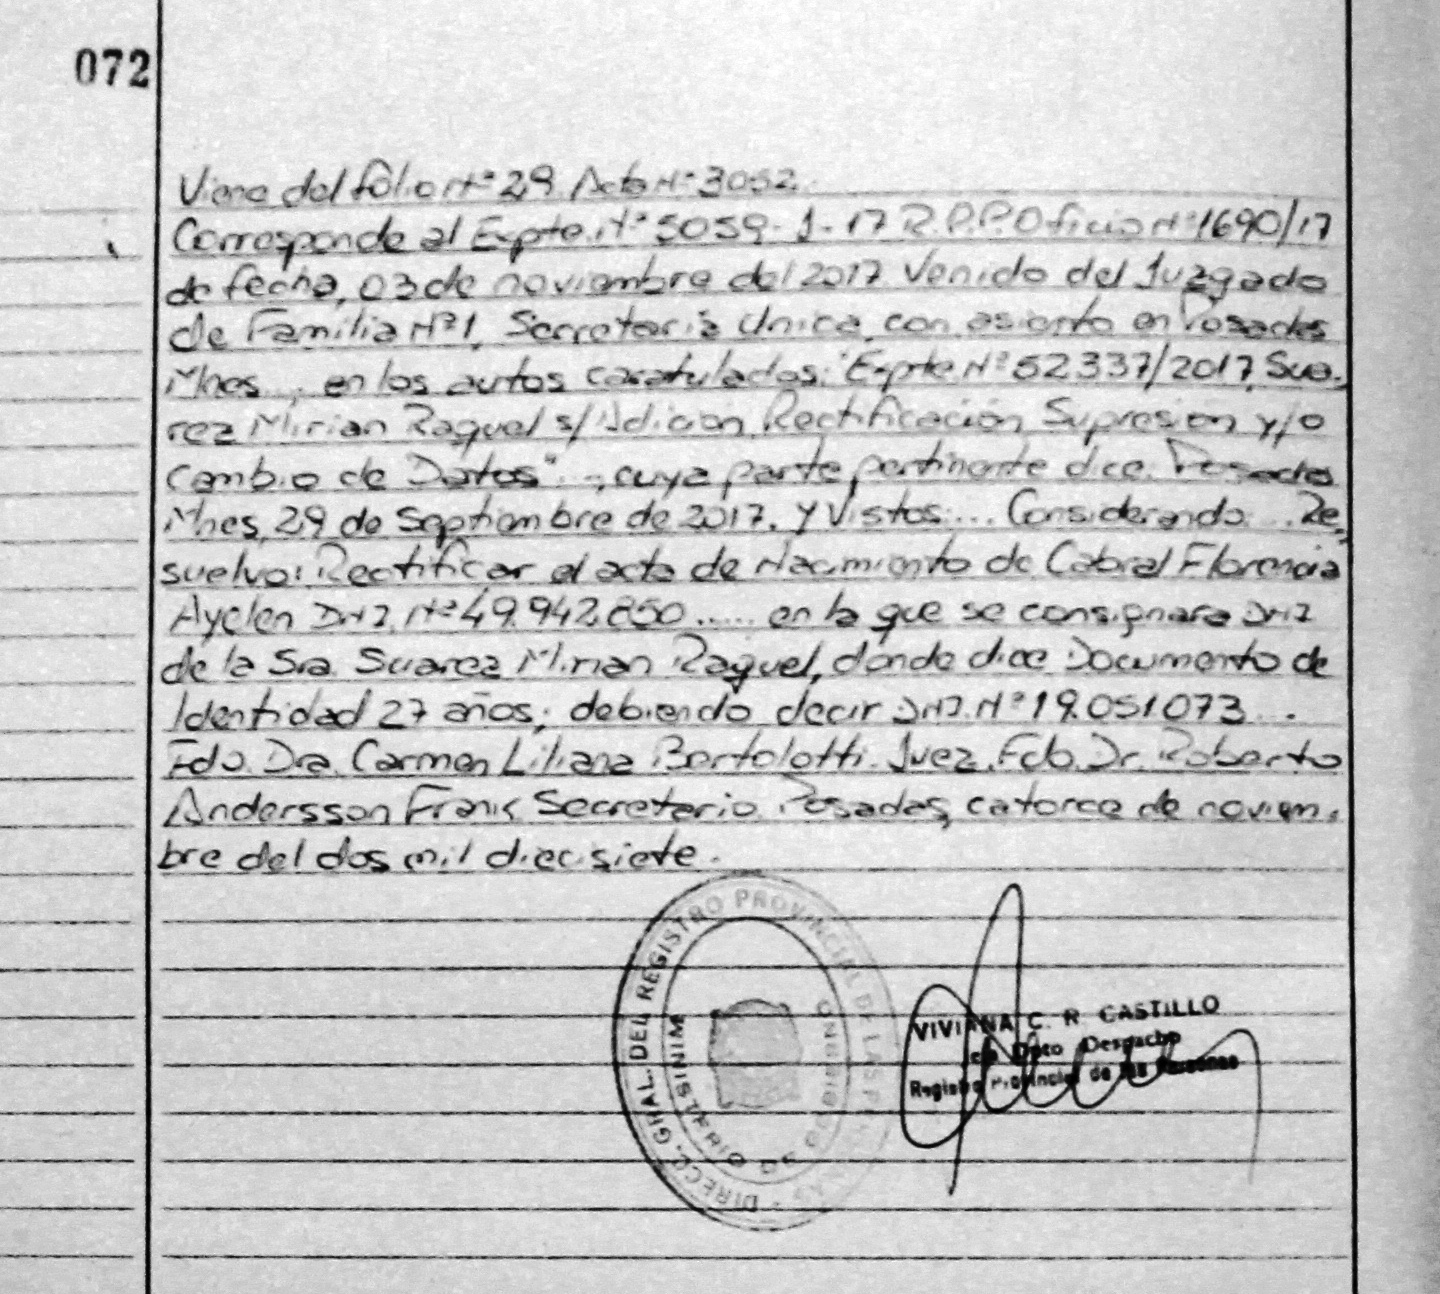 072
Viene del folio Nº 29. Acta Nº 3052.
Corresponde al Expte. Nº 5059-J-17 R.P.P. Oficio Nº 1690/17
de fecha, 03 de noviembre del 2017. Venido del Juzgado
de Familia Nº 1, Secretaria Unica, con asiento en Posadas
Mnes., en los autos caratulados: "Expte Nº 52337/2017, Sua-
rez Mirian Raquel s/ Adicion, Rectificación, Supresion y/o
Cambio de Datos".-, cuya parte pertinente dice: Posadas
Mnes, 29 de Septiembre de 2017. Y Vistos:... Considerando:... Re-
suelvo: Rectificar el acta de Nacimiento de Cabral Florencia
Ayelen DNI. Nº 49.942.850..... en la que se consignara DNI
de la Sra. Suarez Mirian Raquel, donde dice Documento de
Identidad 27 años; debiendo decir DNI. Nº 19.051.073...
Fdo. Dra. Carmen Liliana Bertolotti. Juez. Fdo. Dr. Roberto
Andersson Frank Secretario. Posadas, catorce de noviem-
bre del dos mil diecisiete.
DIRECC. GRAL. DEL REGISTRO PROVINCIAL DE LAS PERSONAS
MINISTERIO DE GOBIERNO
VIVIANA C. R. CASTILLO
Dpto Despacho
Registro Provincial de las Personas